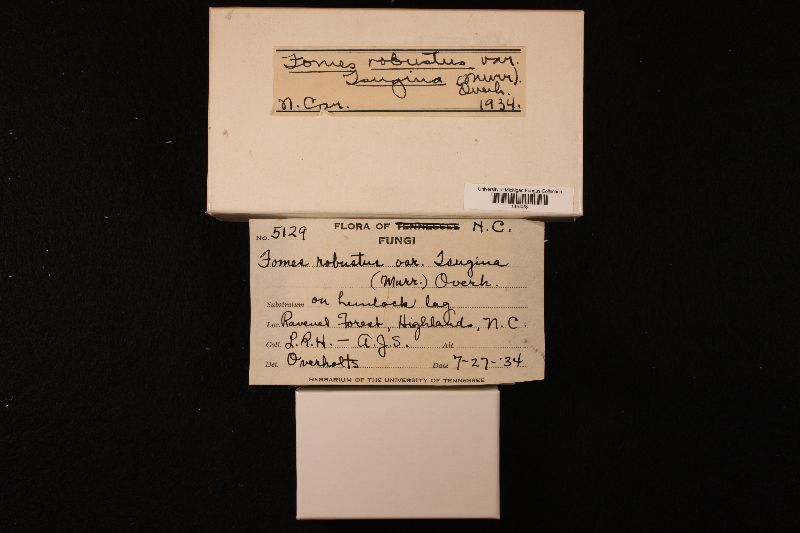 Fomes robustus var.
Tsugina (Murr).
Overh.
N. Car. 1934.
University of Michigan Fungus Collection
No. 5129 FLORA OF TENNESSEE N.C.
FUNGI
Fomes robustus var. Tsugina
(Murr.) Overh.
Substratum on hemlock log
Loc. Ravenel Forest, Highlands, N.C.
Coll. L.R.H. – A.J.S. Alt.
Det. Overholts Date 7-27-'34
HERBARIUM OF THE UNIVERSITY OF TENNESSEE